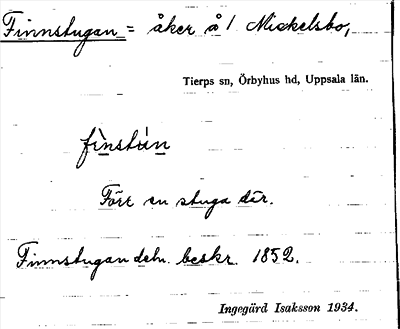 Finnstugan = åker å 1 Mickelsbo,
Tierps sn, Örbyhus hd, Uppsala län.
fìnstùn
Förr en stuga där.
Finnstugan detn. beskr. 1852.
Ingegärd Isaksson 1934.